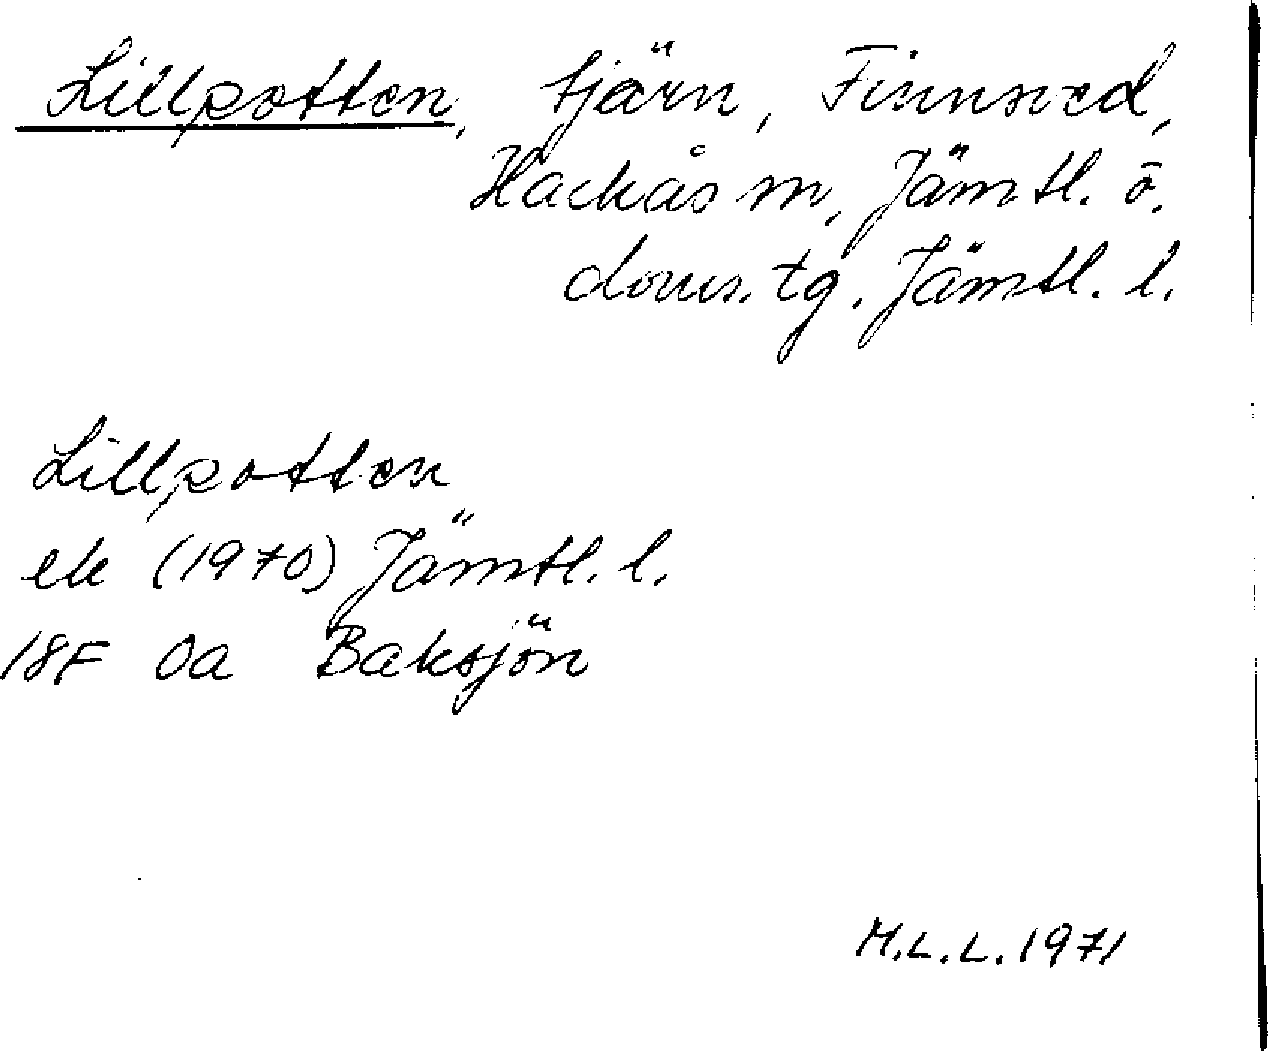 Lillpotten, tjärn, Finnsved,
Hackås sn, Jämtl. ö.
doms. tg. Jämtl. l.
Lillpotten
ek (1970) Jämtl. l.
18F 0a Baksjön
M.L.L. 1971